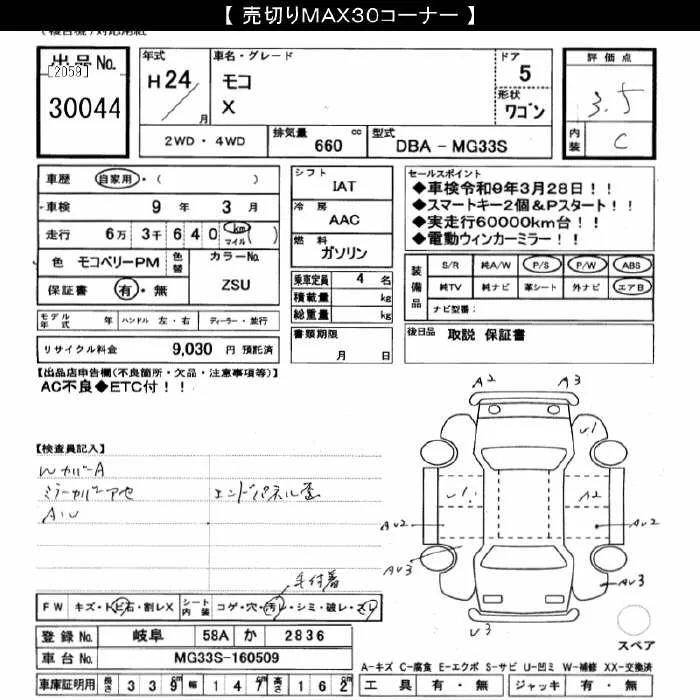 【 売切りMAX30コーナー 】
出品No.
[2059]
30044
年式
H24
月
車名・グレード
モコ
X
ドア
5
形状
ワゴン
評価点
3.5
内装
C
2WD・4WD
排気量 660 cc
型式 DBA－MG33S
車歴 自家用・( )
車検 9年 3月
走行 6万 3千 6 4 0 km マイル
色 モコベリーPM 色替
カラーNo. ZSU
保証書 有・無
シフト
IAT
冷房
AAC
燃料
ガソリン
乗車定員 4 名
積載量 kg
総重量 kg
セールスポイント
◆車検令和9年3月28日！！
◆スマートキー2個&Pスタート！！
◆実走行60000km台！！
◆電動ウィンカーミラー！！
装備品
S/R 純A/W P/S P/W ABS
純TV 純ナビ 革シート 外ナビ エアB
ナビ型番:
モデル年式 年 ハンドル 左・右 ディーラー・並行
リサイクル料金 9,030 円 預託済
書類期限
月 日
後日品 取説 保証書
【出品店申告欄(不良箇所・欠品・注意事項等)】
AC不良◆ETC付！！
【検査員記入】
Wカバー A
ミラーカバーアセ エンドパネル歪
AU
毛付着
A2 A3
U1
U1 A2
AU2 AU2
AU3 AU3
U3
スペア
FW キズ・トビ石・割レX シート内装 コゲ・穴・汚レ・シミ・破レ・スレ
登録No. 岐阜 58A か 2836
車台No. MG33S-160509
車庫証明用 長さ 339 幅 147 高さ 162 cm
A-キズ C-腐食 E-エクボ S-サビ U-凹ミ W-補修 XX-交換済
工具 有・無 ジャッキ 有・無